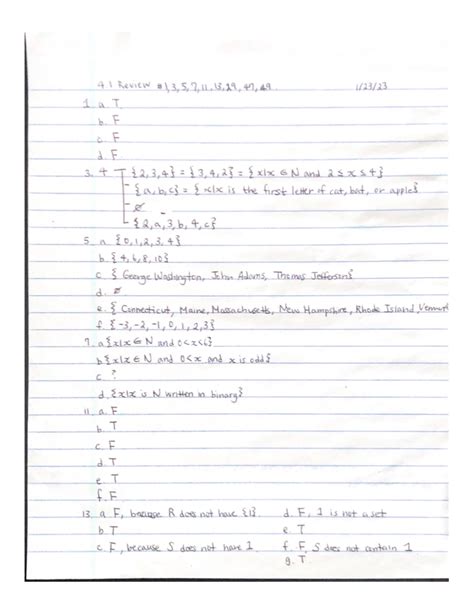 4.1 Review #1,3,5,7,11,13,29,47,49. 1/23/23
1. a. T
b. F
c. F
d. F
3. 4 {2,3,4} = {3,4,2} = {x|x ∈ N and 2 ≤ x ≤ 4}
{a,b,c} = {x|x is the first letter of cat, bat, or apple}
∅
{2,a,3,b,4,c}
5. a. {0,1,2,3,4}
b. {4,6,8,10}
c. { George Washington, John Adams, Thomas Jefferson}
d. ∅
e. { Connecticut, Maine, Massachusetts, New Hampshire, Rhode Island,
f. {-3,-2,-1,0,1,2,3}
7. a {x|x ∈ N and 0<x<6}
b {x|x ∈ N and 0<x and x is odd}
c. ?
d. {x|x is N written in binary}
11. a. F
b. T
c. F
d. T
e T
f. F
13. a F, because R does not have {1}. d. F, 1 is not a set
b. T e. T
c. F, because S does not have 1. f. F, S does not contain 1
g. T